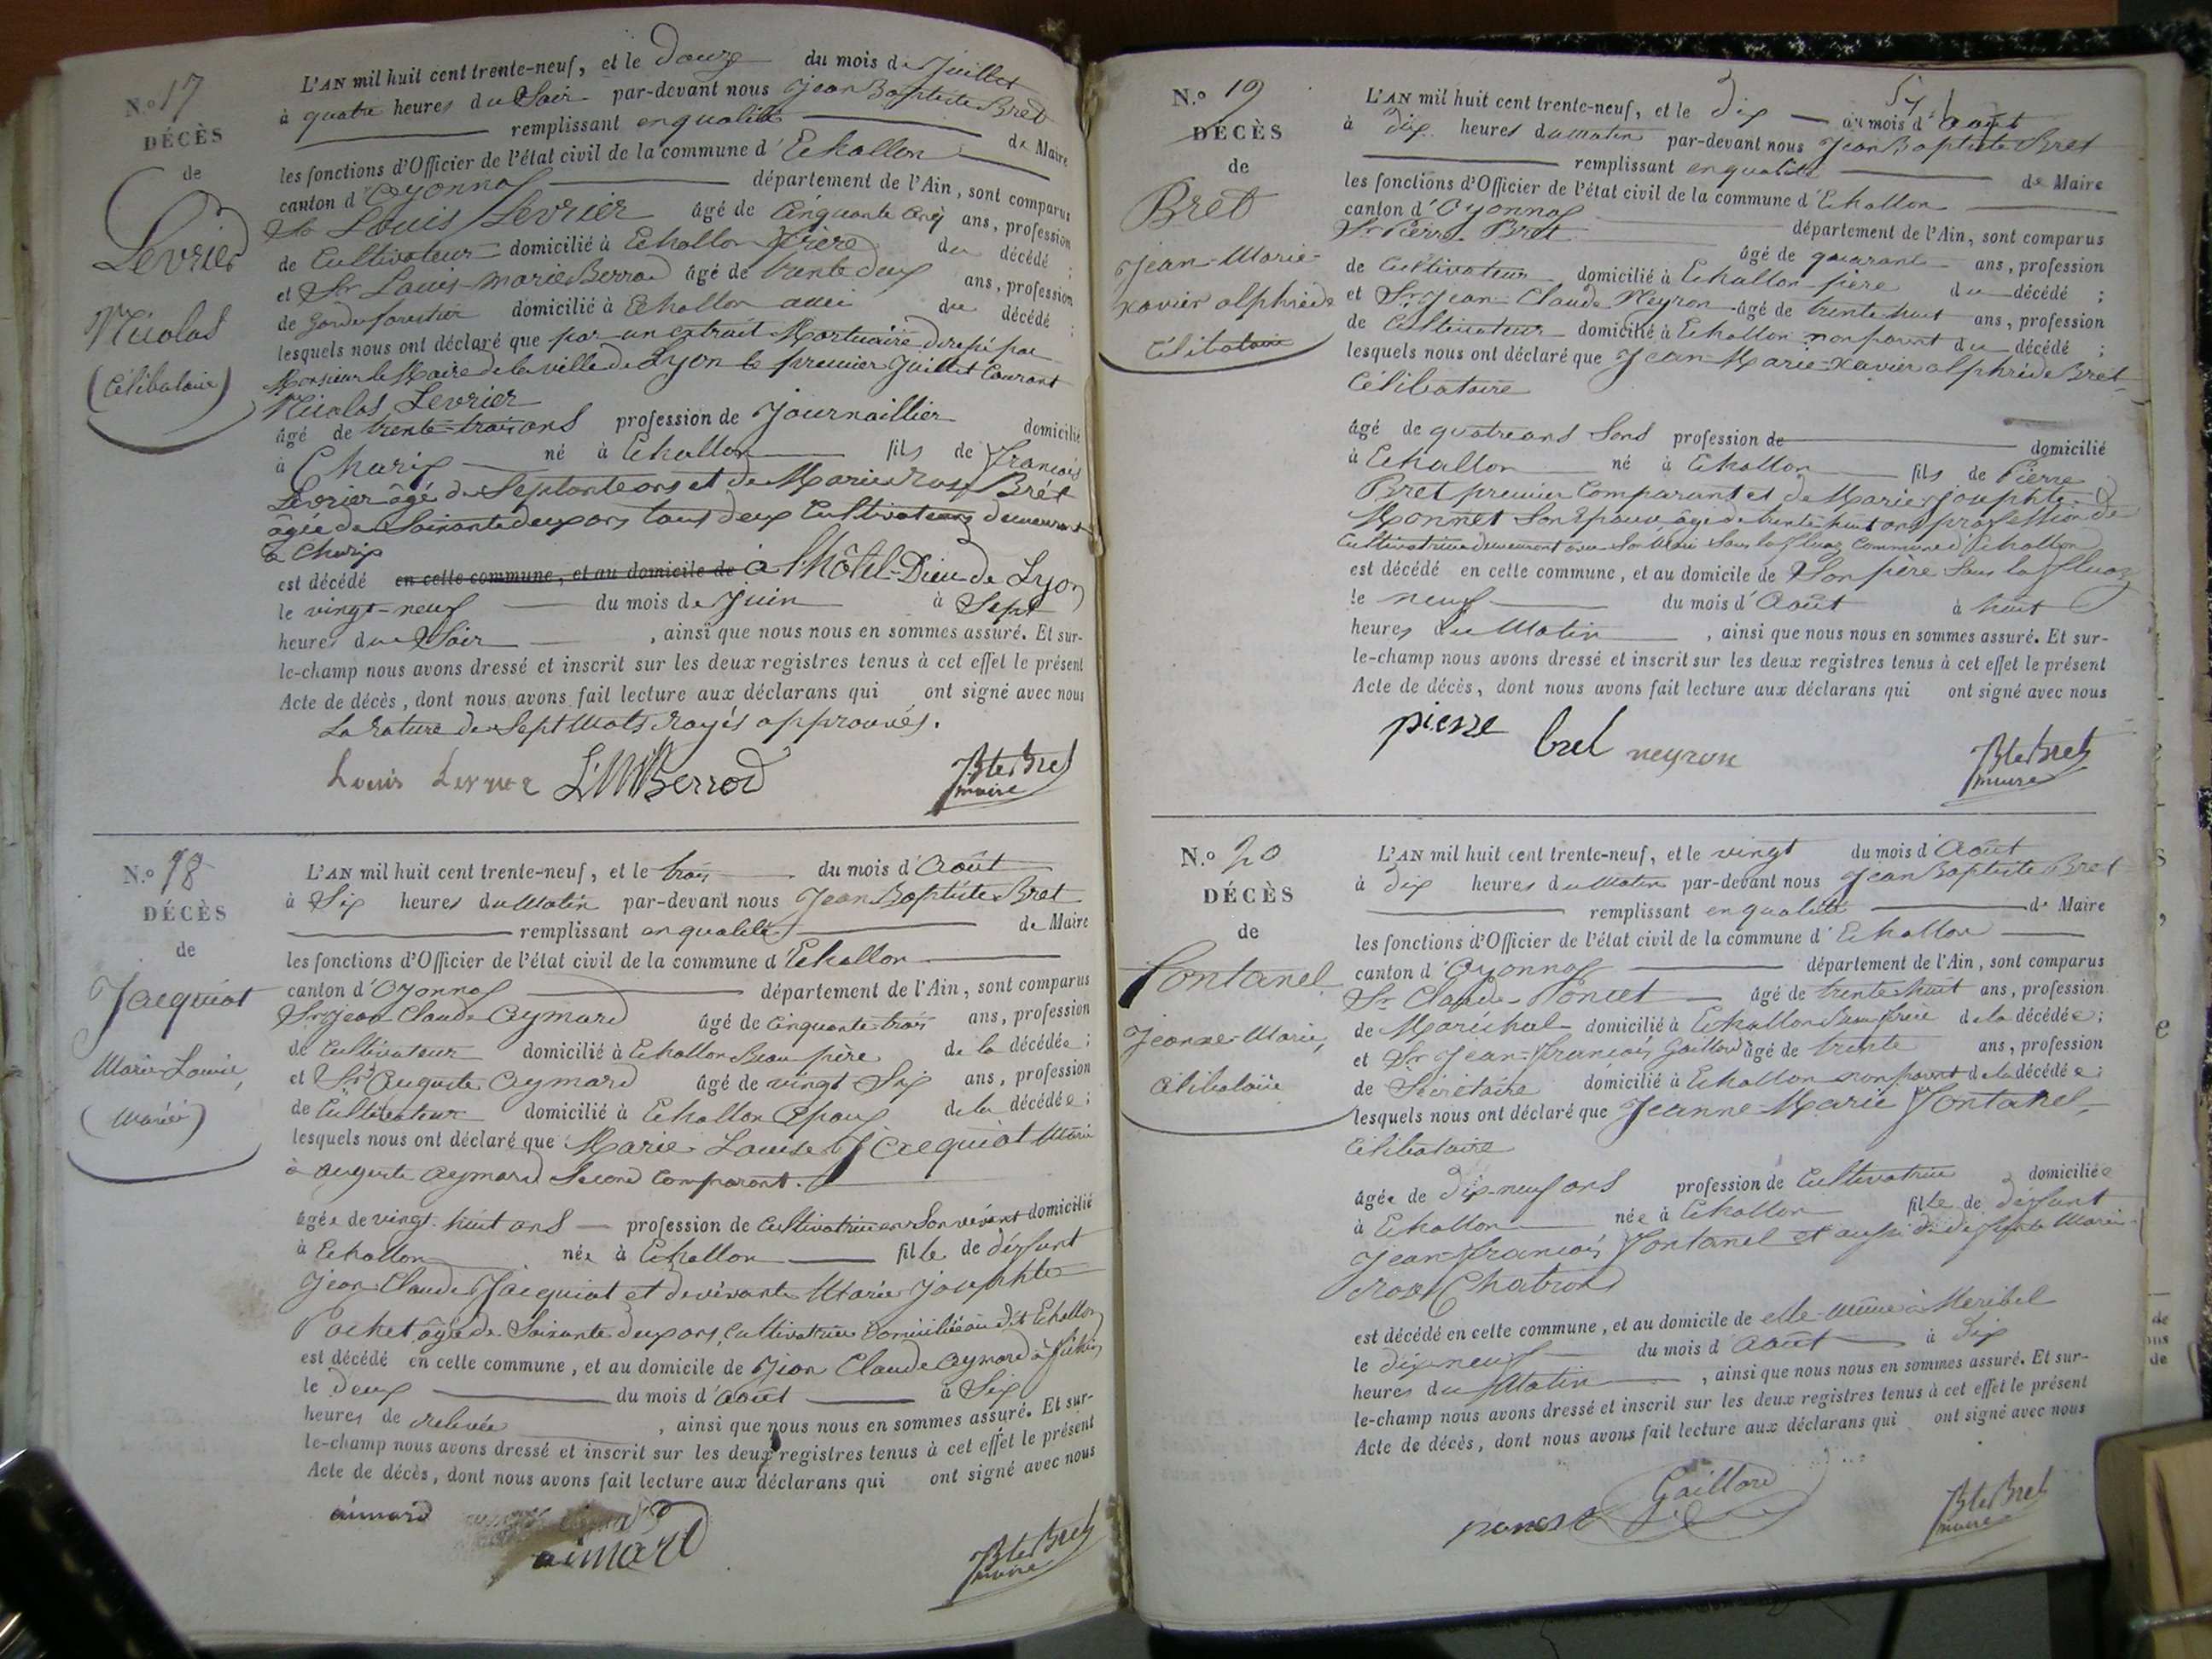 N.o 17
DÉCÈS
de
Levrier
Nicolas
(Célibataire)
L'AN mil huit cent trente-neuf, et le Douze du mois de Juillet
à quatre heures du Soir par-devant nous Jean Baptiste Bret
remplissant en qualité de Maire
les fonctions d'Officier de l'état civil de la commune d'Echallon
canton d'Oyonnax département de l'Ain, sont comparus
Sr Louis Levrier âgé de Cinquante Cinq ans, profession
de Cultivateur domicilié à Echallon frère du décédé ;
et Sr Louis-Marie Berrod âgé de trente deux ans, profession
de Garde forestier domicilié à Echallon ami du décédé ;
lesquels nous ont déclaré que par un extrait Mortuaire par
Monsieur le Maire de la ville de Lyon le premier Juillet Courant
Nicolas Levrier
âgé de trente-trois ans profession de Journaillier domicilié
à Charix né à Echallon fils de François
Levrier âgé de Septante ans et de Marie Rose Brét
âgée de Soixante deux ans tous deux Cultivateurs demeurant
à Charix
est décédé en cette commune, et au domicile de à l'hôtel-Dieu de Lyon
le vingt-neuf du mois de Juin à Sept
heures du Soir , ainsi que nous nous en sommes assuré. Et sur-
le-champ nous avons dressé et inscrit sur les deux registres tenus à cet effet le présent
Acte de décès, dont nous avons fait lecture aux déclarans qui ont signé avec nous
La rature de Sept Mots rayés approuvés.
Louis L.M Berrod Bte Bret
maire
N.o 18
DÉCÈS
de
Jacquiot
Marie Louise,
(Mariée)
L'AN mil huit cent trente-neuf, et le trois du mois d'Août
à Six heures du Matin par-devant nous Jean Baptiste Bret
remplissant en qualité de Maire
les fonctions d'Officier de l'état civil de la commune d'Echallon
canton d'Oyonnax département de l'Ain, sont comparus
Sr Jean Claude Aymard âgé de Cinquante-trois ans, profession
de Cultivateur domicilié à Echallon Beau père de la décédée ;
et Sr Auguste Aymard âgé de vingt Six ans, profession
de Cultivateur domicilié à Echallon Epoux de la décédée ;
lesquels nous ont déclaré que Marie Louise Jacquiot Mariée
à Auguste Aymard Second Comparant.
âgée de vingt-huit ans profession de Cultivatrice en Son vivant domicilié
à Echallon née à Echallon fille de défunt
Jean Claude Jacquiot et de vivante Marie Josephte
Pochet âgée de Soixante deux ans, Cultivatrice domiciliée au dit Echallon
est décédé en cette commune, et au domicile de Jean Claude Aymard à
le Deux du mois d'Août à Six
heures de relevée , ainsi que nous nous en sommes assuré. Et sur-
le-champ nous avons dressé et inscrit sur les deux registres tenus à cet effet le présent
Acte de décès, dont nous avons fait lecture aux déclarans qui ont signé avec nous
aimard
aimard Bte Bret
maire
N.o 19
DÉCÈS
de
Bret
Jean-Marie-
Xavier alphride
Célibataire
L'AN mil huit cent trente-neuf, et le Dix du mois d'Août
à Dix heures du Matin par-devant nous Jean Baptiste Bret
remplissant en qualité de Maire
les fonctions d'Officier de l'état civil de la commune d'Echallon
canton d'Oyonnax département de l'Ain, sont comparus
Sr Pierre Bret âgé de quarante ans, profession
de Cultivateur domicilié à Echallon père du décédé ;
et Sr Jean Claude Neyron âgé de trente huit ans, profession
de Cultivateur domicilié à Echallon non parent du décédé ;
lesquels nous ont déclaré que Jean-Marie-Xavier alphride Bret
Célibataire
âgé de quatre ans Sans profession de domicilié
à Echallon né à Echallon fils de Pierre
Bret premier Comparant et de Marie Josephte
Monnet Son Epouse âgée de trente-huit ans profession de
Cultivatrice demeurant avec Son Mari Commune d'Echallon
est décédé en cette commune, et au domicile de Son père
le neuf du mois d'Août à huit
heures du Matin , ainsi que nous nous en sommes assuré. Et sur-
le-champ nous avons dressé et inscrit sur les deux registres tenus à cet effet le présent
Acte de décès, dont nous avons fait lecture aux déclarans qui ont signé avec nous
pierre bret neyron Bte Bret
maire
N.o 20
DÉCÈS
de
Fontanel
Jeanne-Marie,
Célibataire
L'AN mil huit cent trente-neuf, et le vingt du mois d'Août
à Dix heures du Matin par-devant nous Jean Baptiste Bret
remplissant en qualité de Maire
les fonctions d'Officier de l'état civil de la commune d'Echallon
canton d'Oyonnax département de l'Ain, sont comparus
Sr Claude Poncet âgé de trente huit ans, profession
de Maréchal domicilié à Echallon Beau frère de la décédée ;
et Sr Jean-François Gaillard âgé de trente ans, profession
de Sécrétaire domicilié à Echallon non parent de la décédée ;
lesquels nous ont déclaré que Jeanne-Marie Fontanel,
Célibataire
âgée de Dix-neuf ans profession de Cultivatrice domiciliée
à Echallon née à Echallon fille de défunt
Jean-François Fontanel et aussi de défunte Marie
Rose Chatron
est décédé en cette commune, et au domicile de elle-même à Meribel
le dix neuf du mois d'Août à Dix
heures du Matin , ainsi que nous nous en sommes assuré. Et sur-
le-champ nous avons dressé et inscrit sur les deux registres tenus à cet effet le présent
Acte de décès, dont nous avons fait lecture aux déclarans qui ont signé avec nous
poncet Gaillard Bte Bret
maire